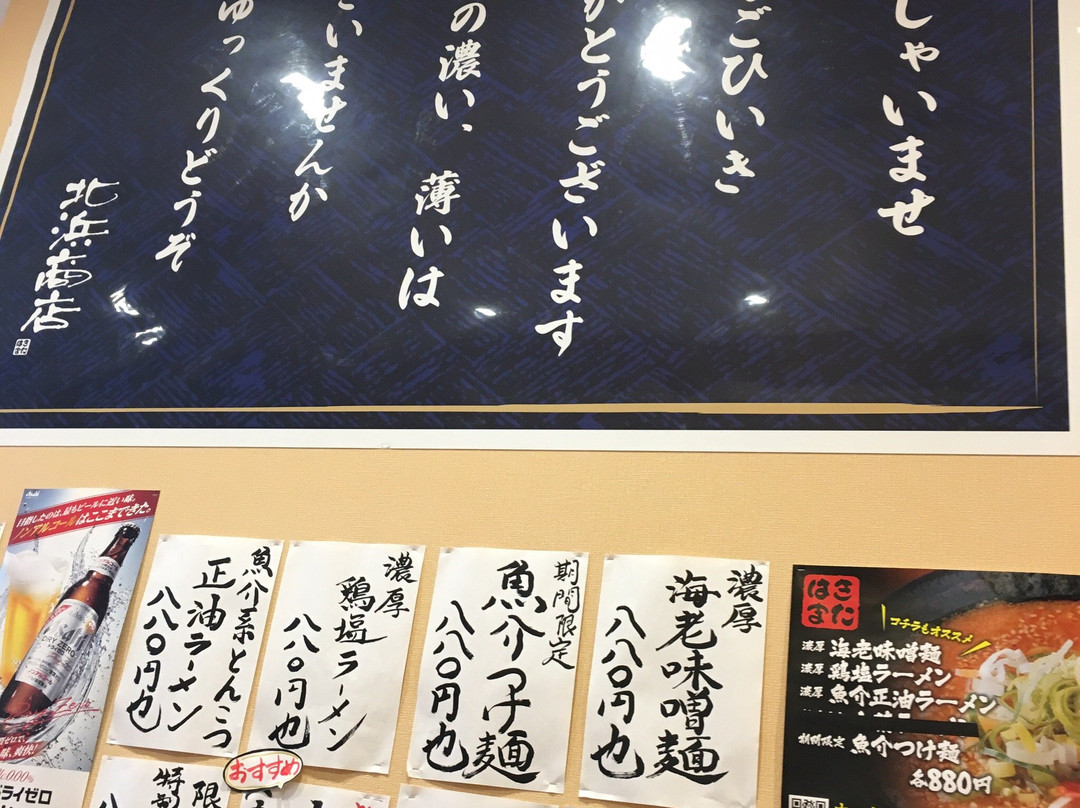 しゃいませ
ごひいき
がとうございます
の濃い、薄いは
いませんか
ゆっくりどうぞ
北浜商店
きた
はま
濃厚
海老味噌麺
八八〇円也
期間限定
魚介つけ麺
八八〇円也
濃厚
鶏塩ラーメン
八八〇円也
魚介系とんこつ
正油ラーメン
八八〇円也
Asahi
目指したのは、最もビールに近い味。
ノンアルコールはここまできた。
DRY ZERO
ドライゼロ
おすすめ
特製
限
きた
はま
コチラもオススメ
濃厚 海老味噌麺
濃厚 鶏塩ラーメン
濃厚 魚介正油ラーメン
期間限定 魚介つけ麺
各880円